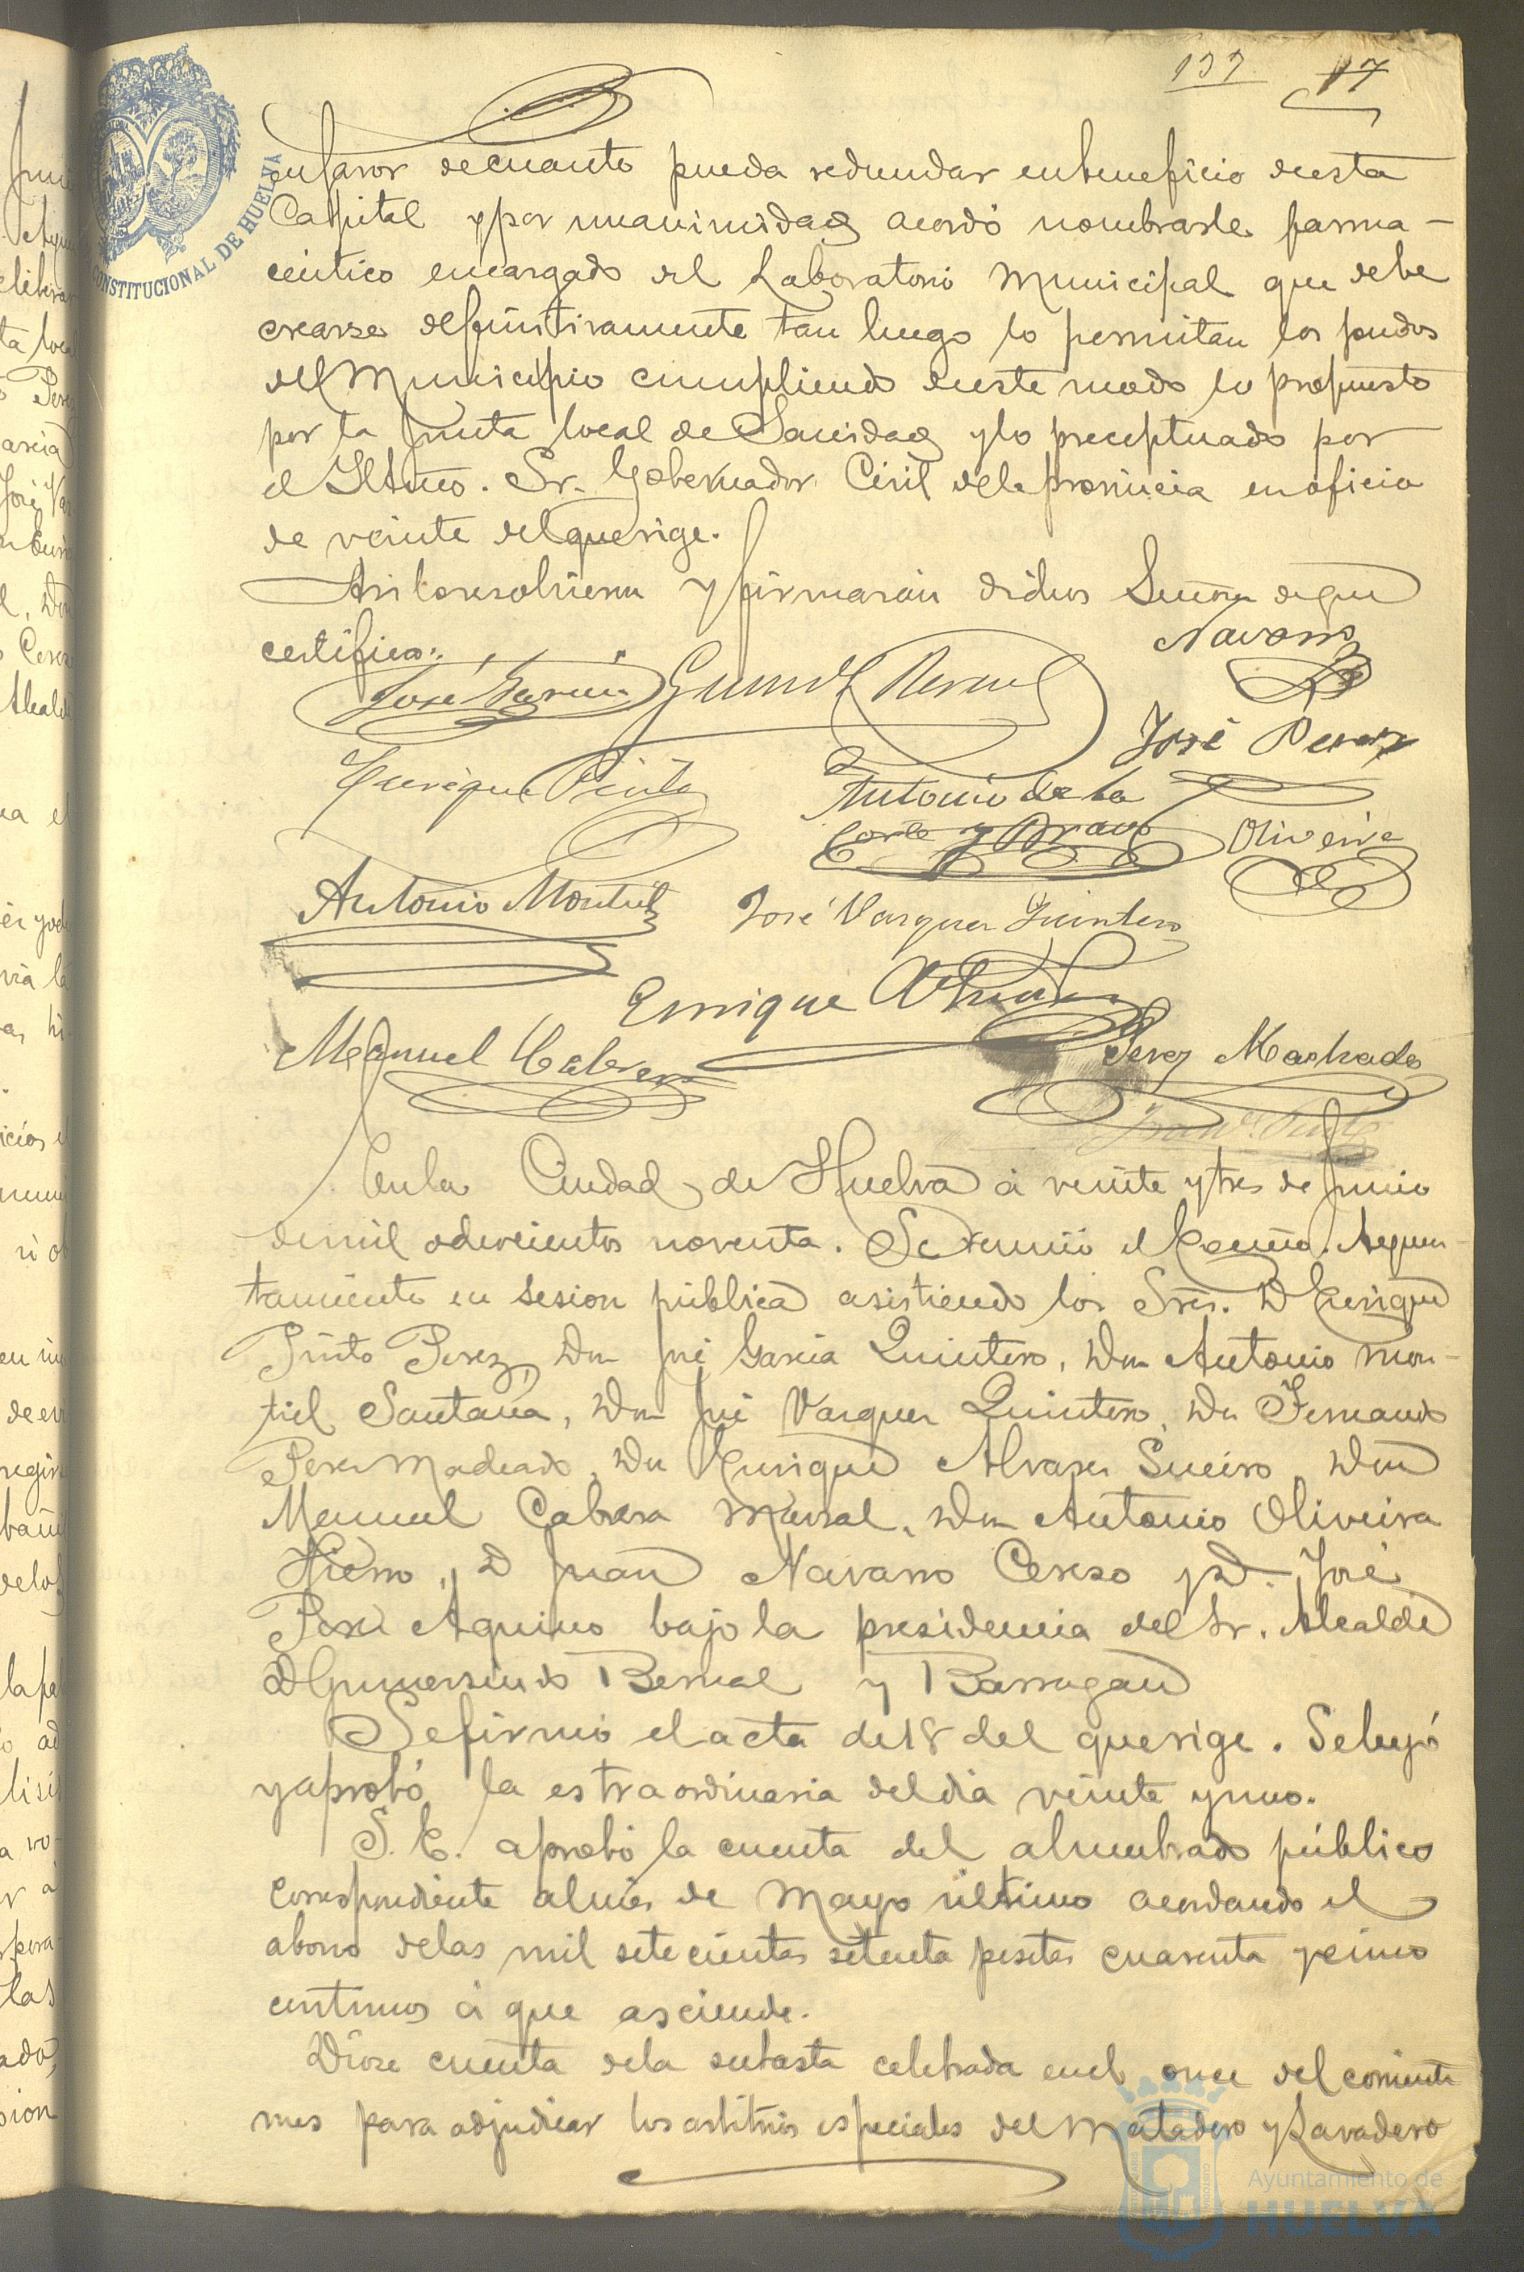 133 17
CONSTITUCIONAL DE HUELVA
en favor de cuanto pueda redundar en beneficio de esta
Capital y por unanimidad acordó nombrarle farma-
céutico encargado del Laboratorio Municipal que debe
crearse definitivamente tan luego lo permitan los fondos
del Municipio cumpliendo de este modo lo propuesto
por la Junta local de Sanidad y lo preceptuado por
el Iltmo. Sr. Gobernador Civil de la provincia en oficio
de veinte del que rige.
Asi lo resolvieron y firmarán dichos Señores de que
certifico.
Navarro
José García Gumdo Bernal
José Perez
Enrique Pinto
Antonio de la
Corte y Bravo Oliveira
Antonio Montiel José Vazquez Quintero
Enrique Alvarez
Manuel Cabrera Perez Machado
Juan Pinto
En la Ciudad de Huelva á veinte y tres de Junio
de mil ochocientos noventa. Se reunió el Excmo. Ayun-
tamiento en sesion pública asistiendo los Sres. D Enrique
Pinto Perez, Don José Garcia Quintero, Don Antonio Mon-
tiel Santana, Don José Vazquez Quintero, Don Fernando
Perez Machado, Don Enrique Alvarez Sueiro, Don
Manuel Cabrera Marzal, Don Antonio Oliveira
Hierro, D Juan Navarro Cerezo y D. José
Perez Aquino bajo la presidencia del Sr. Alcalde
D Gumersindo Bernal y Barragan
Se firmó el acta de 18 del que rige. Se leyó
y aprobó la estraordinaria del dia veinte y uno.
S. E. aprobó la cuenta del alumbrado público
correspondiente al mes de Mayo último acordando el
abono de las mil setecientas setenta pesetas cuarenta y cinco
centimos á que asciende.
Diose cuenta de la subasta celebrada en el once del corriente
mes para adjudicar los arbitrios especiales del Matadero y Lavadero
Ayuntamiento de
HUELVA